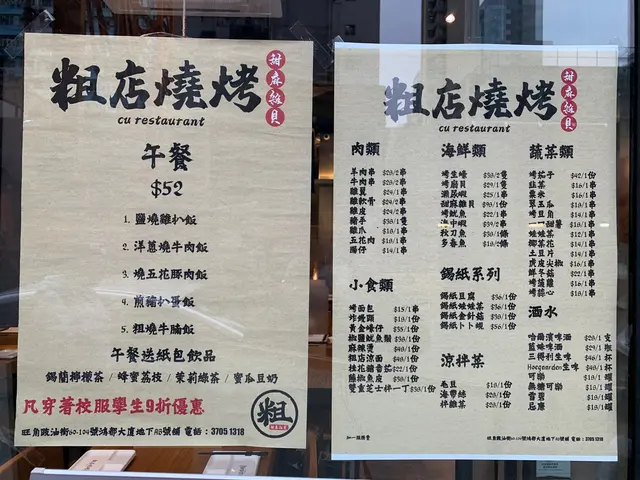 粗店燒烤
甜麻鮑貝
cu restaurant
午餐
$52
1. 鹽燒雞扒飯
2. 洋蔥燒牛肉飯
3. 燒五花豚肉飯
4. 煎豬扒蛋飯
5. 粗燒牛腩飯
午餐送紙包飲品
錫蘭檸檬茶 / 蜂蜜荔枝 / 茉莉綠茶 / 蜜瓜豆奶
凡穿著校服學生9折優惠
粗
旺角豉油街50-104號鴻都大廈地下AB號舖 電話：3705 1318
粗店燒烤
甜麻鮑貝
cu restaurant
肉類
羊肉串 $23/2串
牛肉串 $23/2串
雞翼 $24/1串
雞軟骨 $24/2串
雞皮 $24/2串
豬手 $38/1隻
雞爪 $18/1串
五花肉 $18/1串
腸仔 $14/1串
小食類
烤麵包 $15/1串
炸饅頭 $18/1份
黃金蠔仔 $35/1份
椒鹽魷魚鬚 $38/1份
麻辣燙 $48/1份
粗店涼面 $48/1份
桂花糖番茄 $22/1份
藤椒魚皮 $38/1份
雙重芝士拌一丁 $38/1份
海鮮類
烤生蠔 $38/2隻
烤扇貝 $29/1隻
瀨尿蝦 $25/1串
甜麻雞貝 $93/1份
烤魷魚 $22/1串
海中蝦 $39/2串
秋刀魚 $38/1條
多春魚 $18/2條
錫紙系列
錫紙豆腐 $36/1份
錫紙娃娃菜 $36/1份
錫紙金針菇 $38/1份
錫紙卜卜蜆 $56/1份
涼拌菜
毛豆 $18/1份
海帶絲 $28/1份
拌雜菜 $28/1份
蔬菜類
烤茄子 $42/1份
韭菜 $16/1串
粟米 $16/1串
翠玉瓜 $18/1串
烤豆角 $14/1串
一一甜薯 $18/1串
娃娃菜 $12/1串
椰菜花 $14/1串
土豆片 $14/1串
虎皮尖椒 $16/1串
鮮冬菇 $22/1串
烤蓮藕 $16/1串
烤菜心 $18/1串
酒水
哈爾濱啤酒 $28/1支
藍妹啤酒 $29/1瓶
三得利生啤 $46/1杯
Hoegaarden生啤 $48/1杯
可樂 $18/1罐
無糖可樂 $18/1罐
雪碧 $18/1罐
忌廉 $18/1罐
加一服務費
旺角豉油街50-104號鴻都大廈地下AB號舖 電話：3705 1318